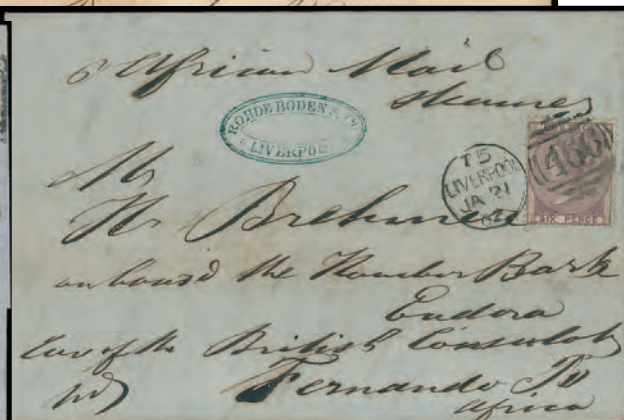 p African Mail
Steamer
ROHDE BODEN & Co
LIVERPOOL
T5
LIVERPOOL
JA 21
466
SIX PENCE
Mr
Hr Brehmer
on board the Hambro Bark
Eudora
Care of the British Consulate
Fernando Po
Africa